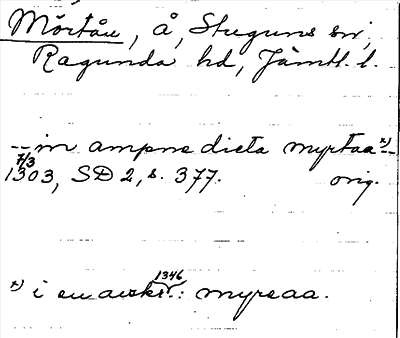 Mörtån, å, Stuguns sn,
Ragunda hd, Jämtl. l.
-- in ampne dicta myrtaa x) --
7/3
1303, SD 2, s. 377. orig.
1346
x) i en avskr.: myreaa.